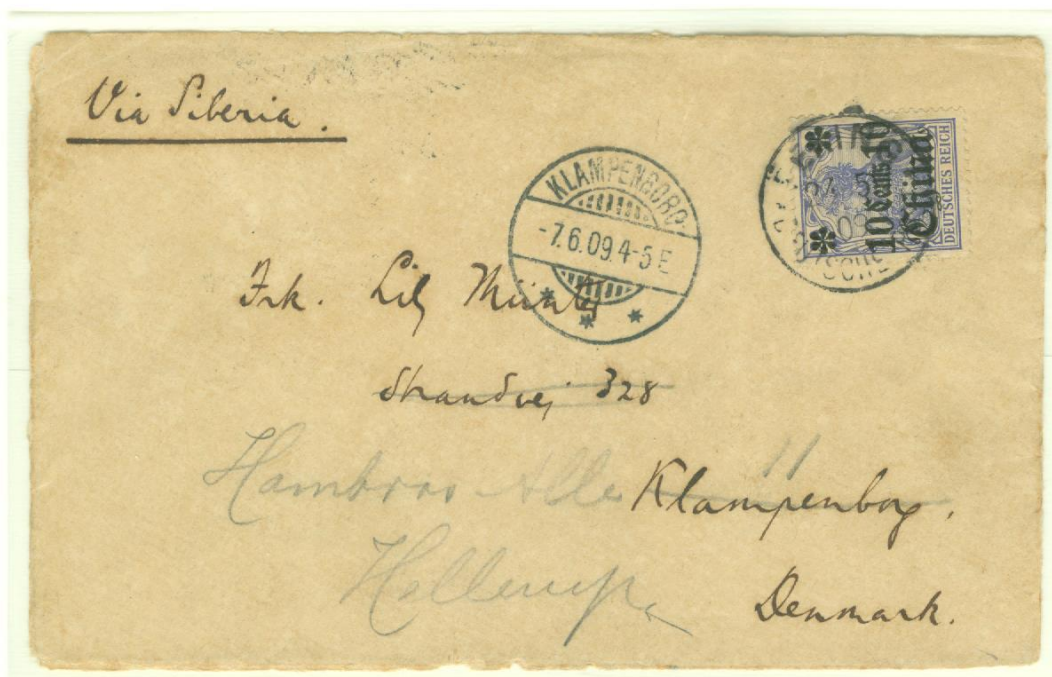 Via Siberia.
KLAMPENBORG
-7.6.09.4-5 E
10 Cents 10
China
DEUTSCHES REICH
Frk. Lily
Strandvej 328
11
Klampenborg.
Hellerup
Denmark.